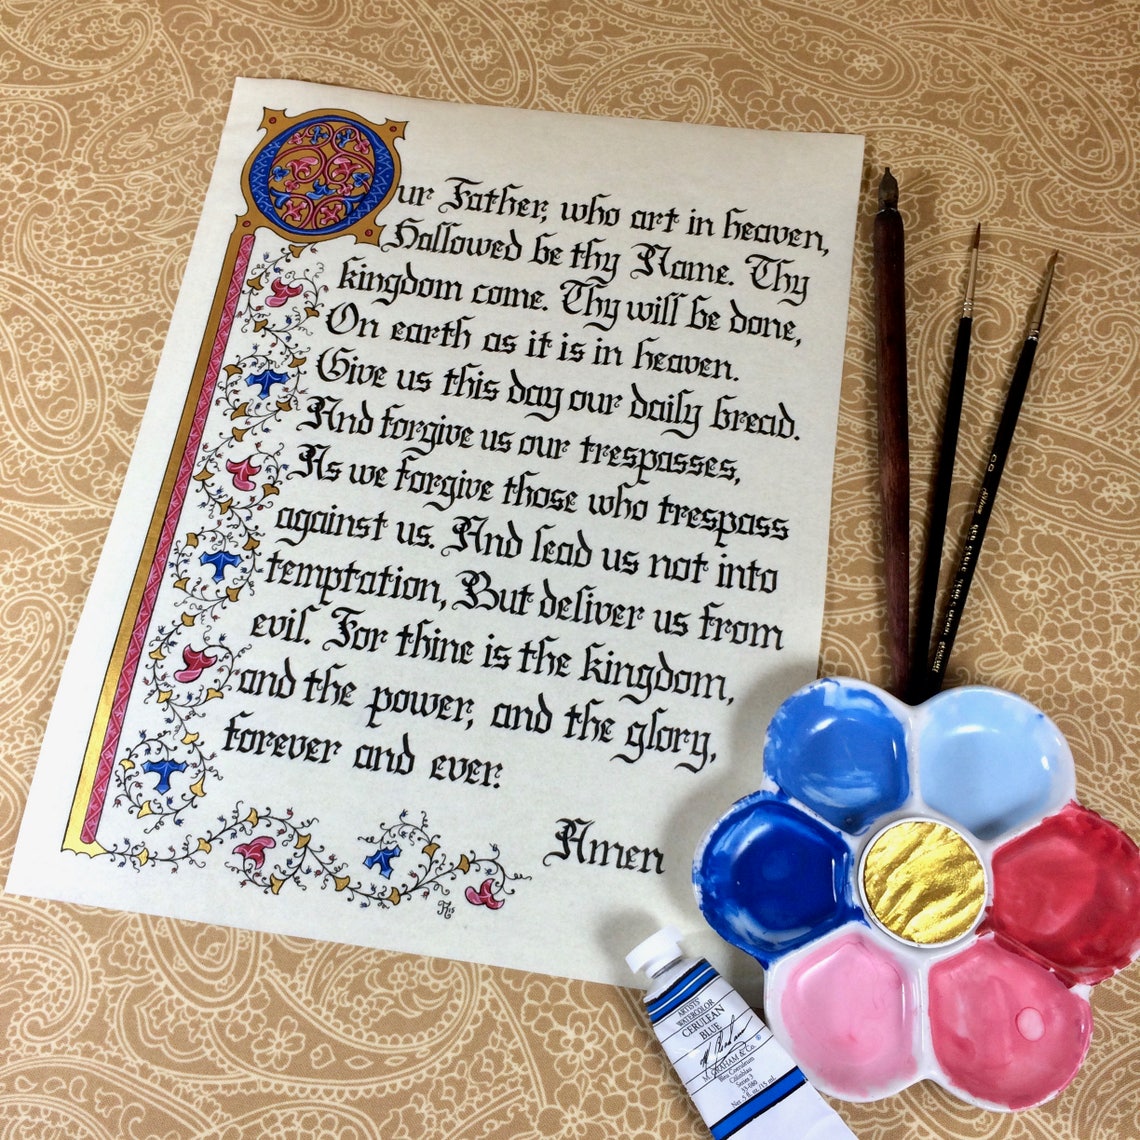 Our Father, who art in heaven,
Hallowed be thy Name. Thy
kingdom come. Thy will be done,
On earth as it is in heaven.
Give us this day our daily bread.
And forgive us our trespasses,
As we forgive those who trespass
against us. And lead us not into
temptation, But deliver us from
evil. For thine is the kingdom,
and the power, and the glory,
forever and ever.
Amen
ARTISTS'
WATERCOLOR
CERULEAN
BLUE
M. GRAHAM & Co.
Bleu Coeruleum
Série 3
33-080
Net .5 fl. oz./15 ml.
00